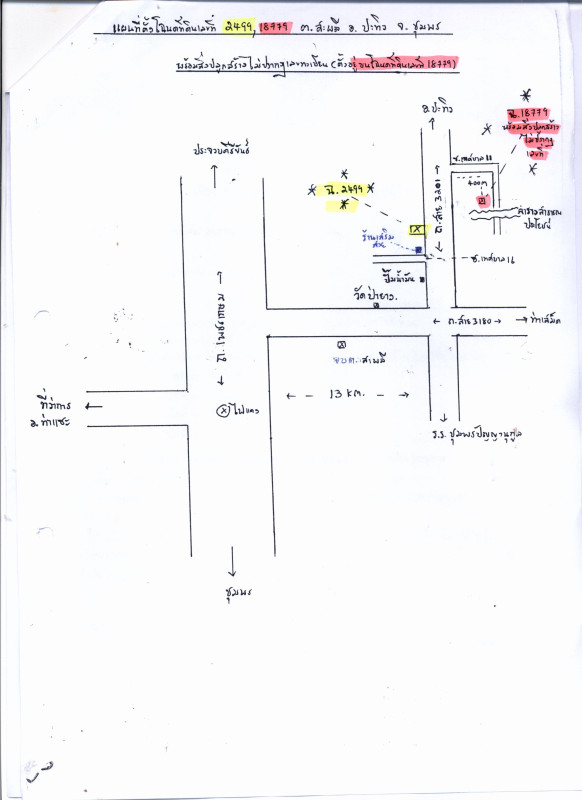 แผนที่ตั้งโฉนดที่ดินเลขที่ 2499, 18779 ต.สะพลี อ.ปะทิว จ.ชุมพร
พร้อมสิ่งปลูกสร้างไม่ปรากฏเลขทะเบียน (ตั้งอยู่บนโฉนดที่ดินเลขที่ 18779)
อ.ปะทิว
ฉ. 18779
พร้อมสิ่งปลูกสร้าง
ไม่ปรากฏ
เลขที่
ประจวบคีรีขันธ์
ซ.เทศบาล 18
ฉ. 2499
400 m
ถ.สาย 3201
ลำรางสาธารณ
ประโยชน์
ร้านเสริม
สวย
ซ.เทศบาล 16
ปั๊มน้ำมัน
วัดป่ายาง.
ถ.เพชรเกษม
ถ.สาย 3180
ท่าเสม็ด
อบต.สะพลี
13 km.
ที่ว่าการ
อ.ท่าแซะ
ไฟแดง
ร.ร. ชุมพรปัญญานุกูล
ชุมพร